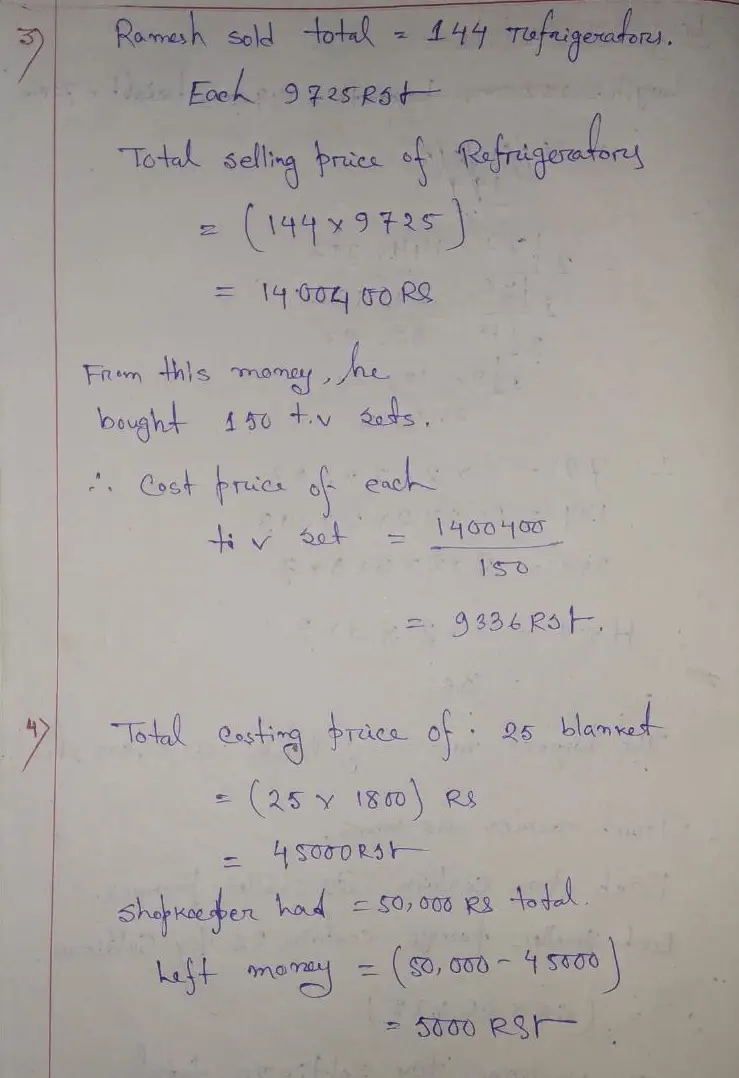 3) Ramesh sold total = 144 refrigerators.
Each 9725 Rs
Total selling price of Refrigerators
= (144 x 9725)
= 1400400 RS
From this money, he
bought 150 t.v sets.
∴ Cost price of each
t.v set = 1400400 / 150
= 9336 Rs.
4) Total costing price of 25 blanket
= (25 x 1800) RS
= 45000 Rs
Shopkeeper had = 50,000 RS total.
Left money = (50,000 - 45000)
= 5000 RS